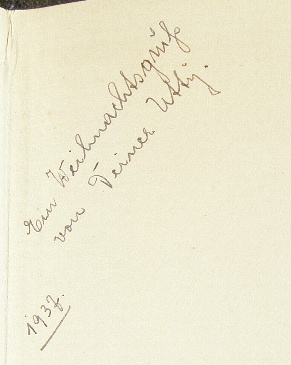 Ein Weihnachtsgruß
von Deiner Utti.
1937.